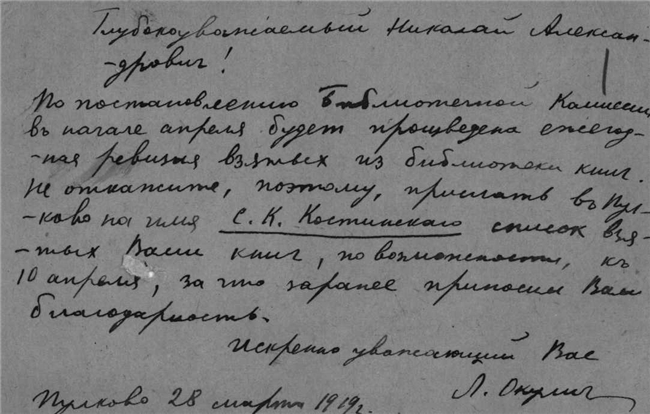 Глубокоуважаемый Николай Алексан-
-дрович!
По постановлению Библиотечной Комиссии
въ начале апреля будет произведена ежегод-
-ная ревизия взятых из библиотеки книг.
Не откажите, поэтому, прислать въ Пул-
-ково на имя С. К. Костинскаго список взя-
-тых Вами книг, по возможности, къ
10 апреля, за что заранее приносим Вам
благодарность.
Искренно уважающий Вас
Л. Окулич
Пулково 28 марта 1919 г.